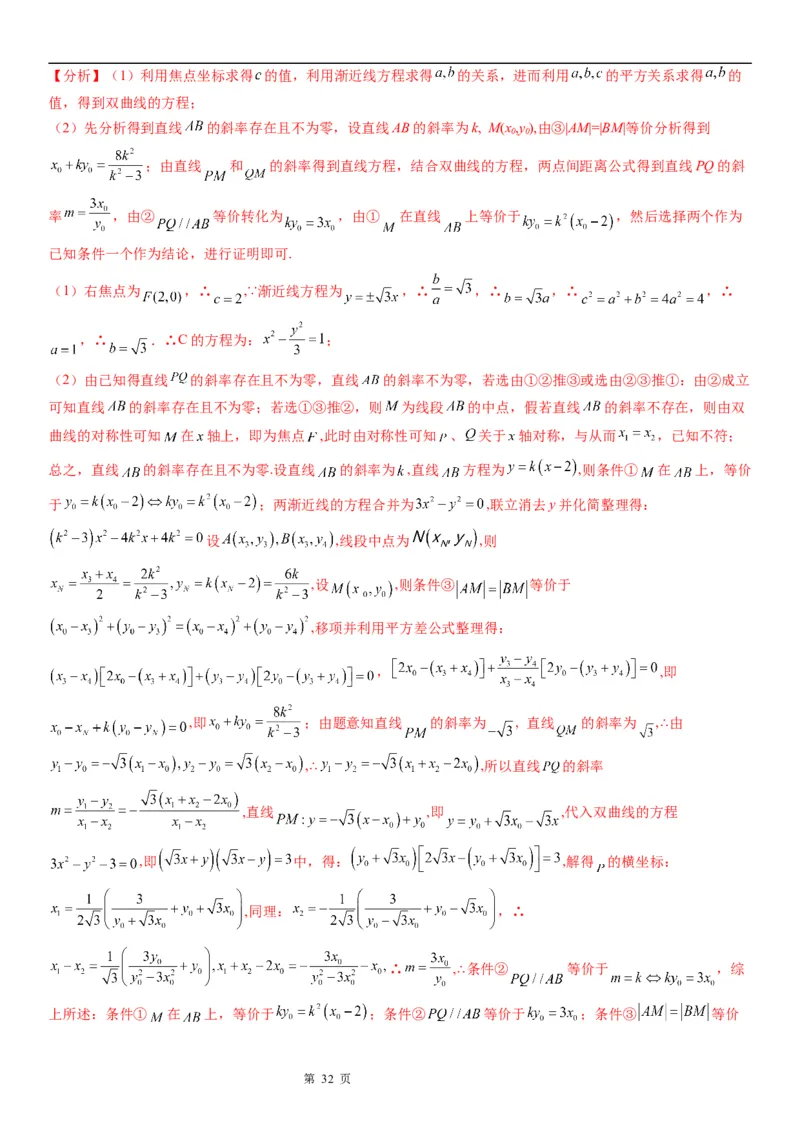 【分析】（1）利用焦点坐标求得c的值，利用渐近线方程求得a,b的关系，进而利用a,b,c的平方关系求得a,b的
值，得到双曲线的方程；
（2）先分析得到直线AB的斜率存在且不为零，设直线AB的斜率为k, M(x₀,y₀),由③|AM|=|BM|等价分析得到
x₀+ky₀=8k²/(k²−3)；由直线PM和QM的斜率得到直线方程，结合双曲线的方程，两点间距离公式得到直线PQ的斜
率m=3x₀/y₀，由②PQ//AB等价转化为ky₀=3x₀，由①M在直线AB上等价于ky₀=k²(x₀−2)，然后选择两个作为
己知条件一个作为结论，进行证明即可.
（1）右焦点为F(2,0)，∴c=2,∵渐近线方程为y=± 3x，∴b/a= 3，∴b= 3a，∴c²=a²+b²=4a²=4，∴
a=1，∴b= 3．∴C的方程为：x²−y²/3=1；
（2）由己知得直线PQ的斜率存在且不为零，直线AB的斜率不为零，若选由①②推③或选由②③推①：由②成立
可知直线AB的斜率存在且不为零；若选①③推②，则M为线段AB的中点，假若直线AB的斜率不存在，则由双
曲线的对称性可知M在x轴上，即为焦点F,此时由对称性可知P、Q关于x轴对称，与从而x₁=x₂，己知不符；
总之，直线AB的斜率存在且不为零.设直线AB的斜率为k,直线AB方程为y=k(x−2),则条件①M在AB上，等价
于y₀=k(x₀−2)⇔ky₀=k²(x₀−2)；两渐近线的方程合并为3x²−y²=0,联立消去y并化简整理得：
(k²−3)x²−4k²x+4k²=0设A(x₃,y₃),B(x₃,y₄),线段中点为N(x_N,y_N),则
x_N=(x₃+x₄)/2=2k²/(k²−3),y_N=k(x_N−2)=6k/(k²−3),设M(x₀,y₀),则条件③|AM|=|BM|等价于
(x₀−x₃)²+(y₀−y₃)²=(x₀−x₄)²+(y₀−y₄)²,移项并利用平方差公式整理得：
(x₃−x₄)[2x₀−(x₃+x₄)]+(y₃−y₄)[2y₀−(y₃+y₄)]=0，[2x₀−(x₃+x₄)]+(y₃−y₄)/(x₃−x₄)[2y₀−(y₃+y₄)]=0,即
x₀−x_N+k(y₀−y_N)=0,即x₀+ky₀=8k²/(k²−3)；由题意知直线PM的斜率为− 3, 直线QM的斜率为 3,∴由
y₁−y₀=− 3(x₁−x₀),y₂−y₀= 3(x₂−x₀),∴y₁−y₂=− 3(x₁+x₂−2x₀),所以直线PQ的斜率
m=(y₁−y₂)/(x₁−x₂)=− 3(x₁+x₂−2x₀)/(x₁−x₂),直线PM:y=− 3(x−x₀)+y₀,即y=y₀+ 3x₀− 3x,代入双曲线的方程
3x²−y²−3=0,即( 3x+y)( 3x−y)=3中，得：(y₀+ 3x₀)[2 3x−(y₀+ 3x₀)]=3,解得P的横坐标：
x₁=1/(2 3)(3/(y₀+ 3x₀)+y₀+ 3x₀),同理：x₂=−1/(2 3)(3/(y₀− 3x₀)+y₀− 3x₀)，∴
x₁−x₂=1/ 3(3y₀/(y₀²−3x₀²)+y₀),x₁+x₂−2x₀=−3x₀/(y₀²−3x₀²)−x₀,∴m=3x₀/y₀,∴条件②PQ//AB等价于m=k⇔ky₀=3x₀，综
上所述：条件①M在AB上，等价于ky₀=k²(x₀−2)；条件②PQ//AB等价于ky₀=3x₀；条件③|AM|=|BM|等价
第 32 页